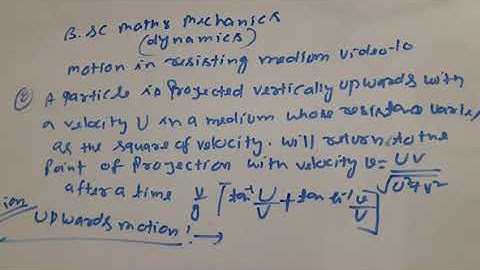 B.SC maths mechanics
(dynamics)
motion in resisting medium video-10
② A particle is Projected vertically upwards with
a velocity U in a medium whose resistance varies
as the square of velocity. will return to the
Point of Projection with velocity v = UV/√(U²+V²)
after a time V/g [tan⁻¹ U/V + tan h⁻¹ v/V]
ion
UPwards motion! →